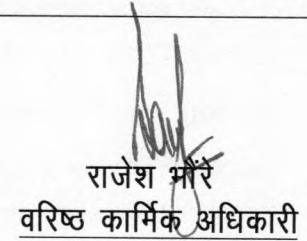 राजेश भौंरे
वरिष्ठ कार्मिक अधिकारी